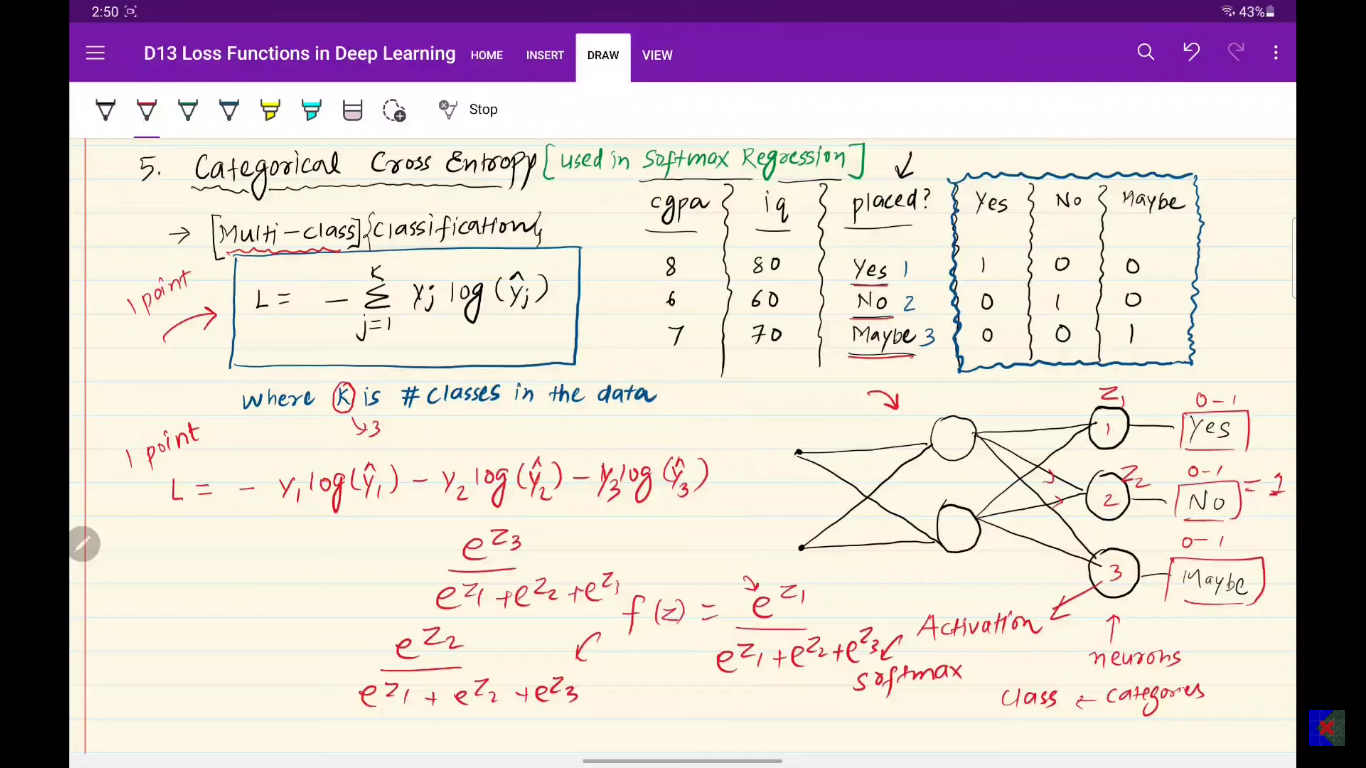 2:50
43%
D13 Loss Functions in Deep Learning HOME INSERT DRAW VIEW
Stop
5. Categorical Cross Entropy [used in Softmax Regression]
→ [Multi-class] {Classification}
1 point
L = - Σ_{j=1}^{K} Yj log(ŷj)
where K is # classes in the data
↳ 3
cgpa iq placed?
8 80 Yes 1
6 60 No 2
7 70 Maybe 3
Yes No Maybe
1 0 0
0 1 0
0 0 1
1 point
L = - Y1 log(ŷ1) - Y2 log(ŷ2) - Y3 log(ŷ3)
e^Z3
e^Z1 + e^Z2 + e^Z1
e^Z2
e^Z1 + e^Z2 + e^Z3
f(z) = e^Z1
e^Z1 + e^Z2 + e^Z3
Z1 0-1
1 Yes
Z2 0-1
2 No = 1
0-1
3 Maybe
Activation
softmax
↑
neurons
class ← categories